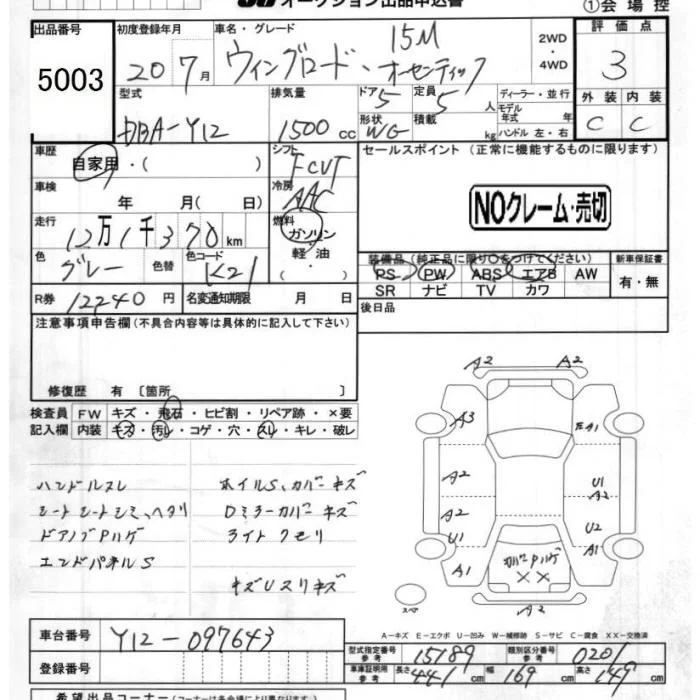 オークション出品申込書
①会場控
出品番号 5003
初度登録年月 20 7月
車名・グレード ウィングロード、15M オーセンティック
2WD ・ 4WD
評価点 3
外装 内装
C C
型式 DBA-Y12
排気量 1500 cc
ドア 5
形状 WG
定員 5 人
積載 kg
ディーラー・並行
モデル年式 年
ハンドル 左・右
車歴 自家用・( )
シフト FCVT
車検 年 月(日)
冷房 AAC
走行 12万1千370km
燃料 ガソリン 軽油 ・
色 グレー 色替
色コード K21
R券 12240円
名変通知期限 月 日
セールスポイント(正常に機能するものに限ります)
NOクレーム・売切
装備品(純正品に限り〇をつけてください)
PS PW ABS エアB AW
SR ナビ TV カワ
新車保証書
有・無
後日品
注意事項申告欄(不具合内容等は具体的に記入して下さい)
修復歴 有 〔箇所 〕
検査員記入欄
FW キズ・飛石・ヒビ割・リペア跡・×要
内装 キズ・汚レ・コゲ・穴・スレ・キレ・破レ
ハンドルスレ
シートシートシミ、ヘタリ
ドアノブPハゲ
エンドパネルS
ホイルS、カバーキズ
Dミラーカバーキズ
ライトクモリ
キズUスリキズ
A2 A2
A3 EA1
A2 U1 A2
A2 U2
U1 A1
A1 カバーPハゲ ×× A1
スペア
A-キズ E-エクボ U-凹み W-補修跡 S-サビ C-腐食 XX-交換済
車台番号 Y12-097643
登録番号
型式指定番号 参考 15189
類別区分番号 参考 0201
車庫証明用 参考 長さ 441cm 幅 169cm 高さ 149cm
希望出品コーナー